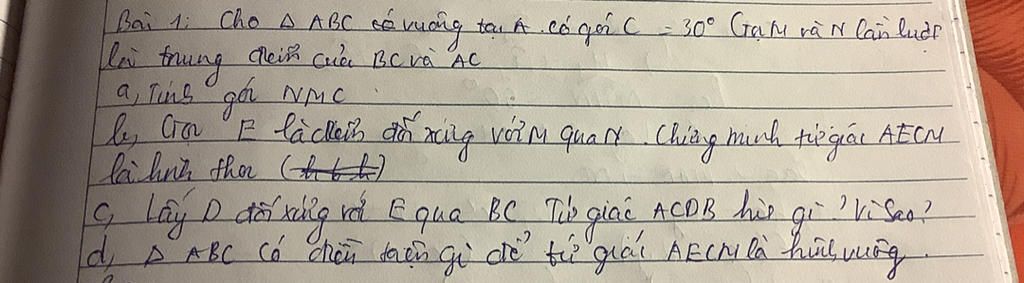 Bài 1: Cho Δ ABC có vuông tại A. có góc C = 30° Gọi M và N lần lượt
là trung điểm của BC và AC
a, Tính góc NMC
b, Gọi E là điểm đối xứng với M qua N. Chứng minh tứ giác AECM
là hình thoi
c, Lấy D đối xứng với E qua BC Tứ giác ACDB hình gì? Vì Sao?
d, Δ ABC có điều kiện gì để tứ giác AECM là hình vuông.